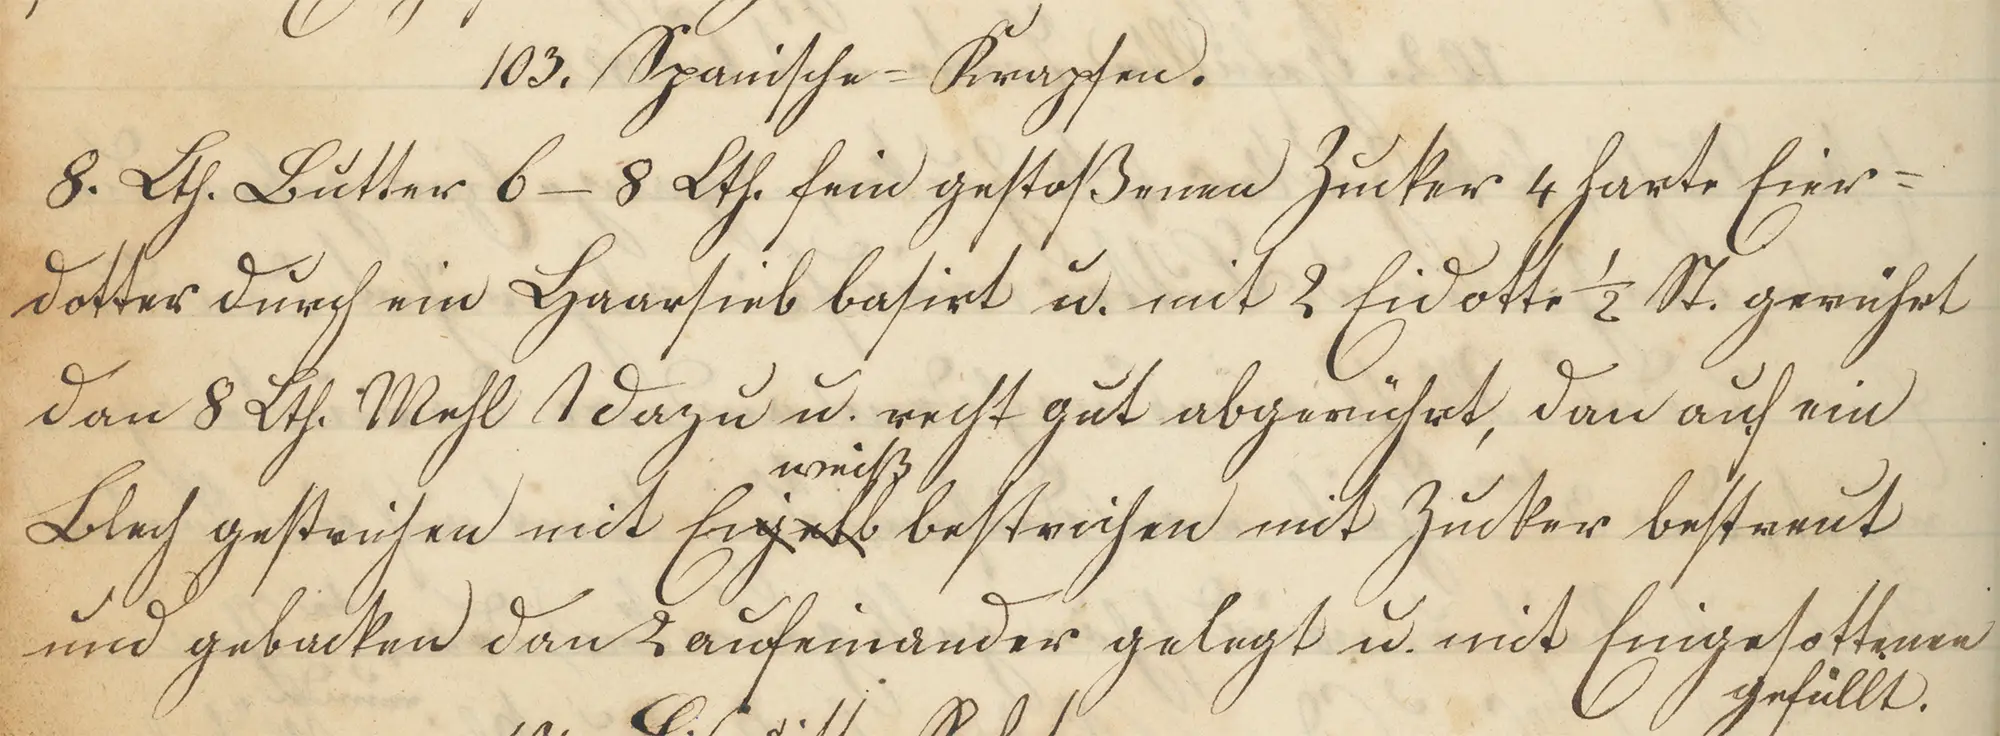 103. Spanische=Krapfen.
8. Lth. Butter 6–8 Lth. fein gestoßenen Zucker 4 harte Eier=
dotter durch ein Haarsieb basirt u. mit 2 Eidotte ½ St. gerührt
dan 8 Lth. Mehl dazu u. recht gut abgerührt, dan auf ein
weiß
Blech gestrichen mit Eigelb bestrichen mit Zucker bestreut
und gebacken dan 2 aufeinander gelegt u. mit Eingesottenen
gefüllt.